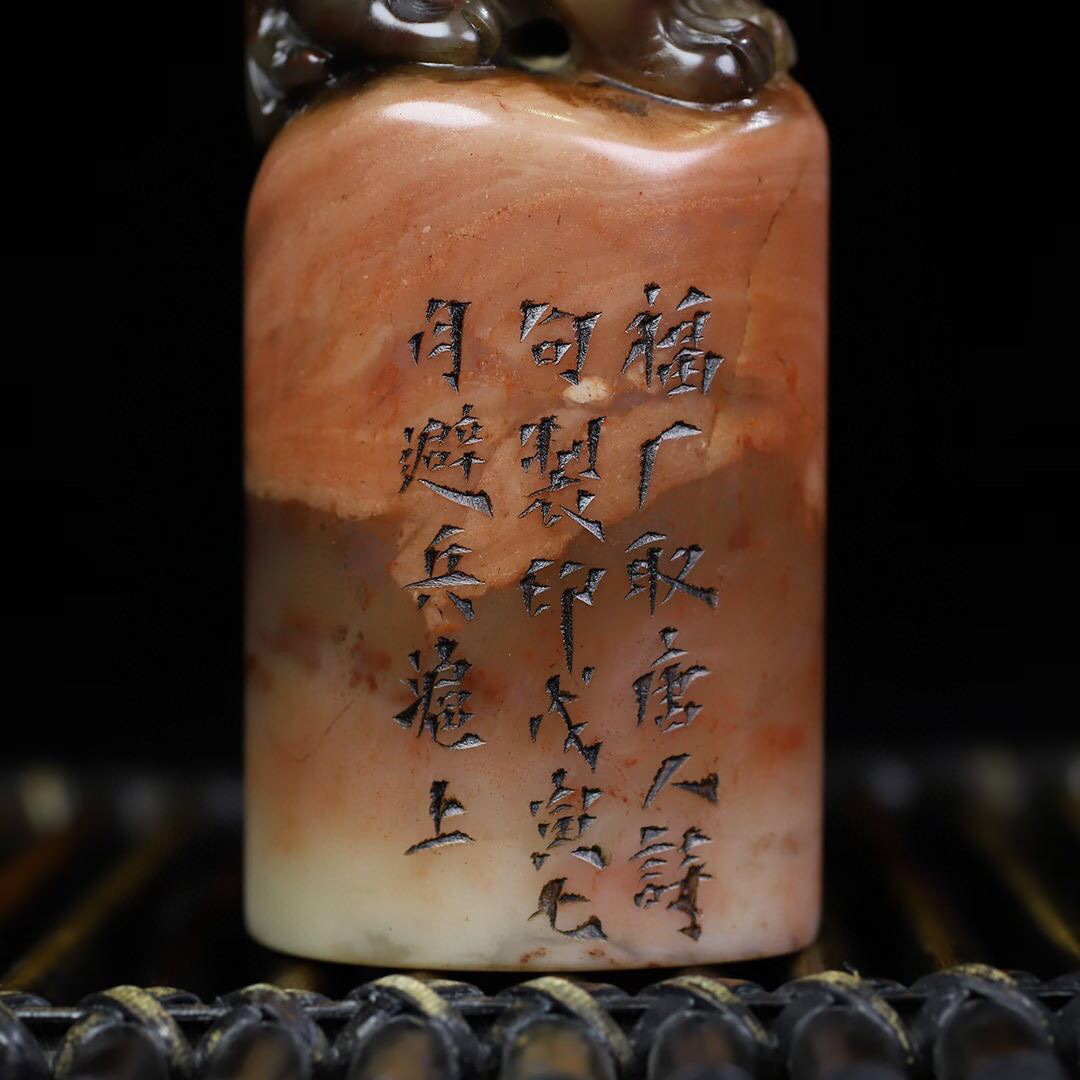 福厂取唐人詩
句製印戊寅七
月避兵滬上